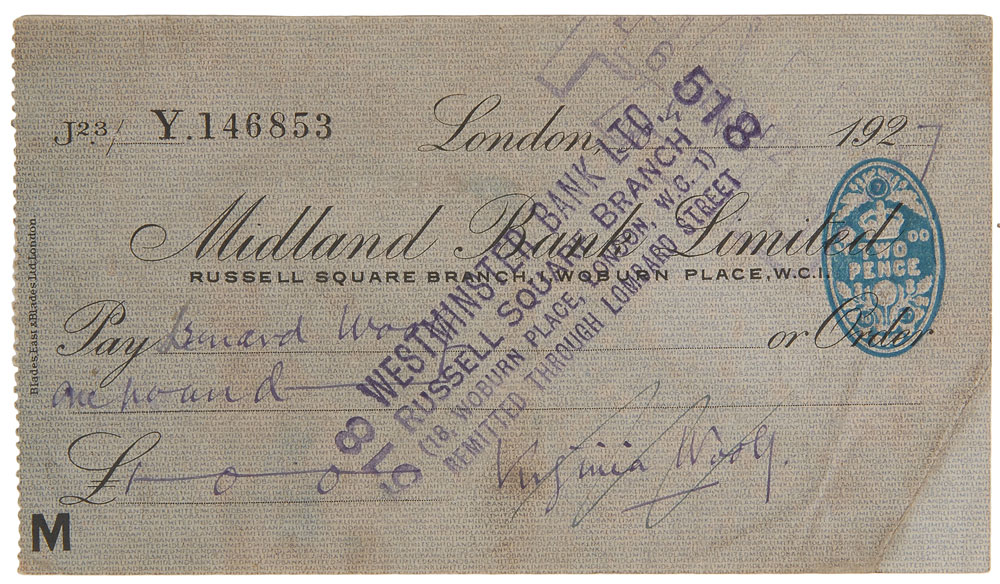 J23/ Y.146853
London, 1927
Midland Bank Limited
RUSSELL SQUARE BRANCH, WOBURN PLACE, W.C.1.
Pay Leonard Woolf or Order
one pound
£1 - 0 - 0
Virginia Woolf.
M
Blades, East & Blades, Ltd London
TWO
PENCE
518 WESTMINSTER BANK LTD. 518
RUSSELL SQUARE BRANCH
(18, WOBURN PLACE, LONDON, W.C.1)
REMITTED THROUGH LOMBARD STREET